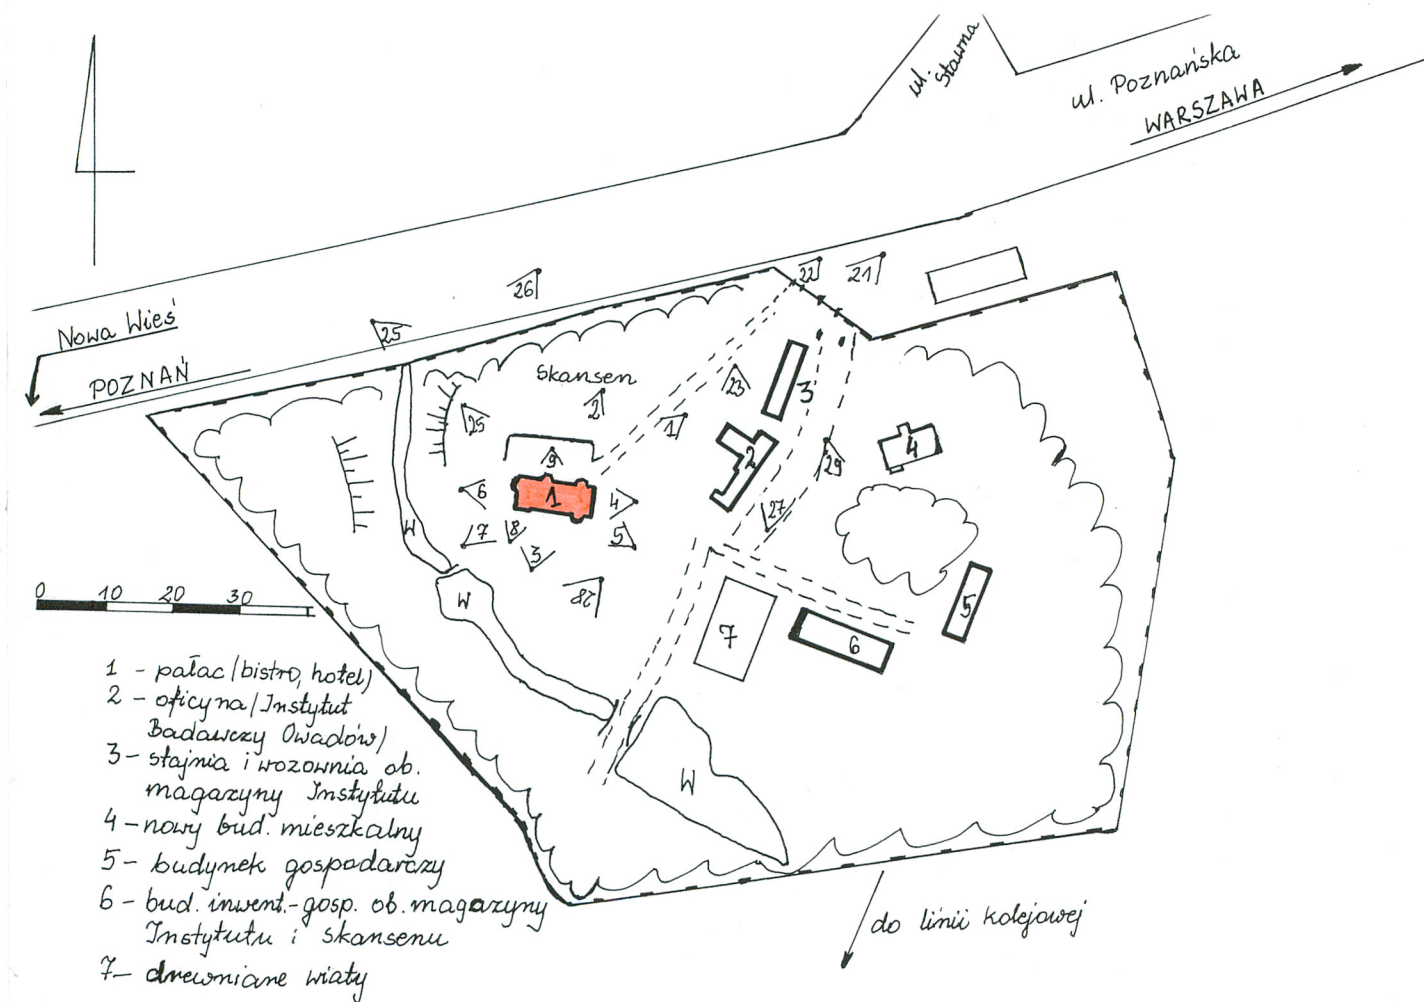 ul. Stawna
ul. Poznańska
WARSZAWA
Nowa Wieś
POZNAŃ
26
25
22
21
Skansen
23
3
25
2
1
9
2
29
4
6
1
4
27
7
8
3
5
28
W
W
7
6
5
W
0 10 20 30
1 - pałac/bistro, hotel/
2 - oficyna/Instytut
Badawczy Owadów/
3 - stajnia i wozownia ob.
magazyny Instytutu
4 - nowy bud. mieszkalny
5 - budynek gospodarczy
6 - bud. inwent.-gosp. ob. magazyny
Instytutu i skansenu
7 - drewniane wiaty
do linii kolejowej